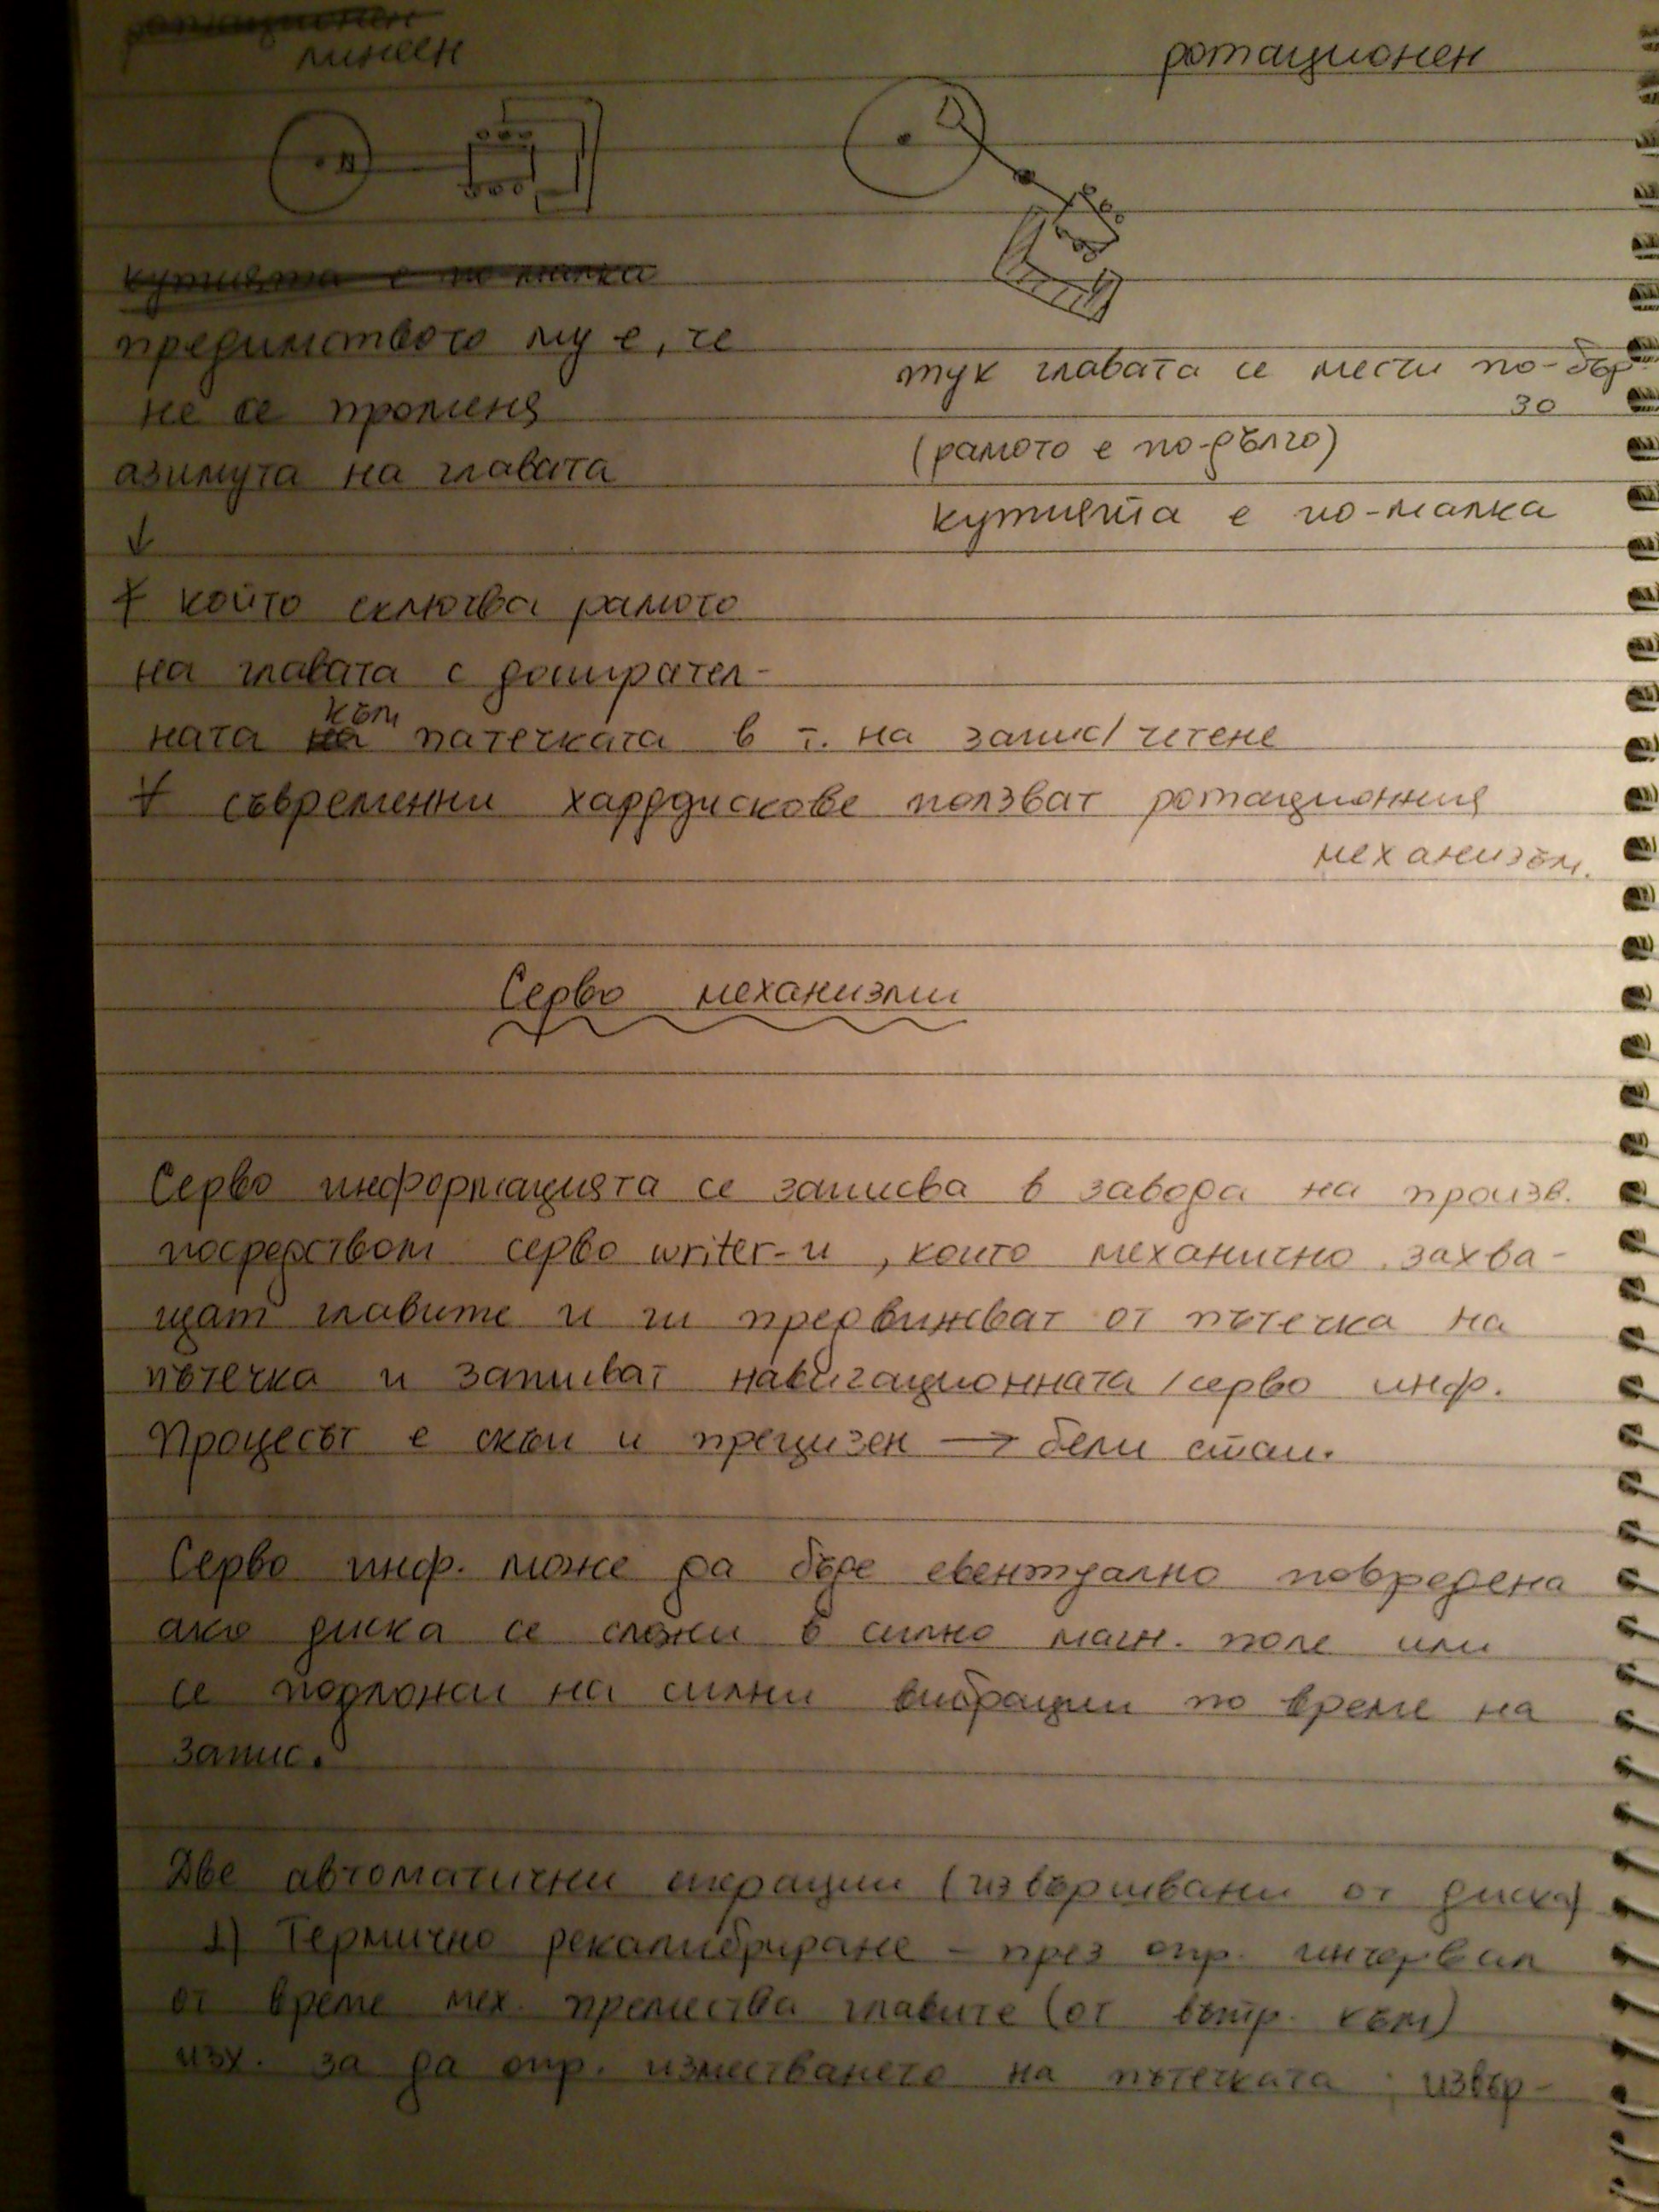 линеен
ротационен
кутията е по малка
предимството му е, че
не се променя
азимута на главата
тук главата се мести по-бър
зо
(рамото е по-дълго)
кутията е по-малка
който сключва рамото
на главата с допирател-
ната към патечката в т. на запис/четене
∀ съвременни харддискове ползват ротационния
механизъм.
Серво механизми
Серво информацията се записва в завода на произв.
посредством серво writer-и, които механично захва-
щат главите и ги предвижват от пътечка на
пътечка и записват навигационната/серво инф.
Процесът е скъп и прецизен → бели стаи.
Серво инф. може да бъде евентуално повредена
ако диска се сложи в силно магн. поле или
се подложи на силни вибрации по време на
запис.
Две автоматични операции (извършвани от диска)
1) Термично рекалибриране – през опр. интервал
от време мех. премества главите (от вътр. към)
изх. за да опр. изместването на пътечката; извър-